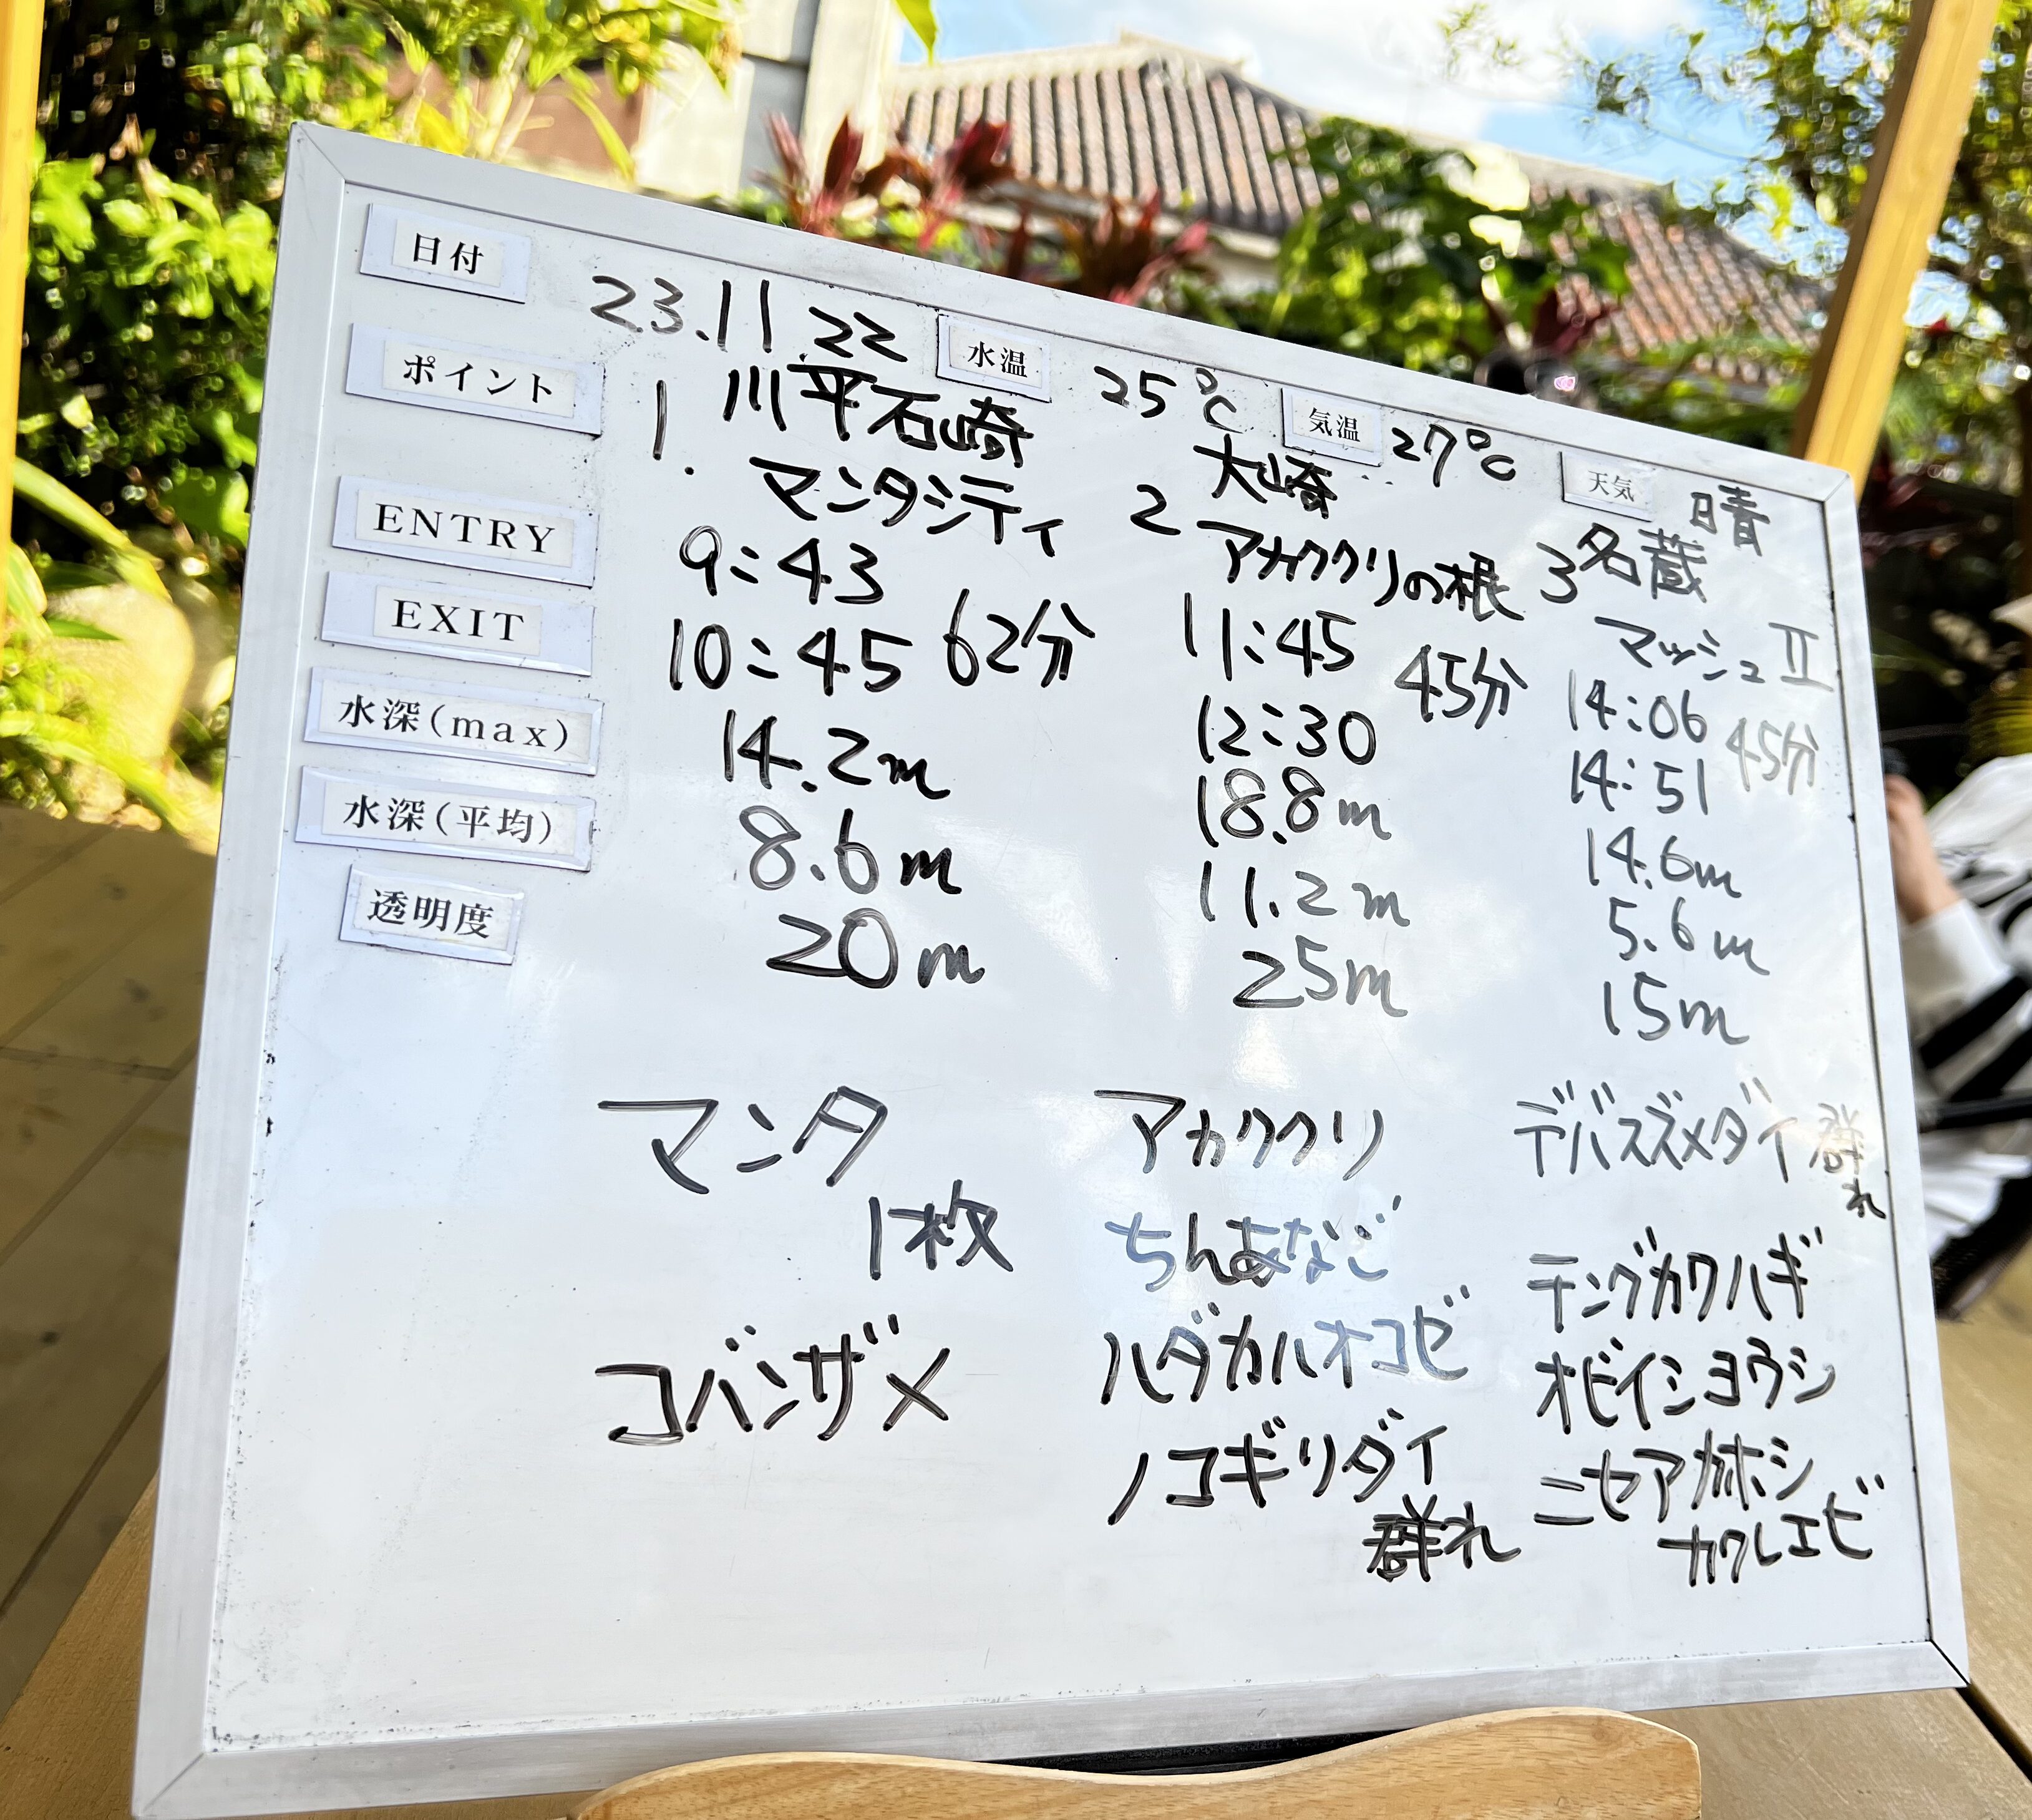 日付 23.11 22 水温 25℃ 気温 27℃ 天気 晴
ポイント 1. 川平石崎 2 大崎 3 名蔵
マンタシティ アカククリの根 マッシュⅡ
ENTRY 9:43 11:45 14:06
EXIT 10:45 62分 12:30 45分 14:51 45分
水深(max) 14.2m 18.8m 14.6m
水深(平均) 8.6m 11.2m 5.6m
透明度 20m 25m 15m
マンタ
1枚
コバンザメ
アカククリ
ちんあなご
ハダカハオコゼ
ノコギリダイ
群れ
デバスズメダイ群れ
テングカワハギ
オビイシヨウジ
ニセアカホシ
カクレエビ